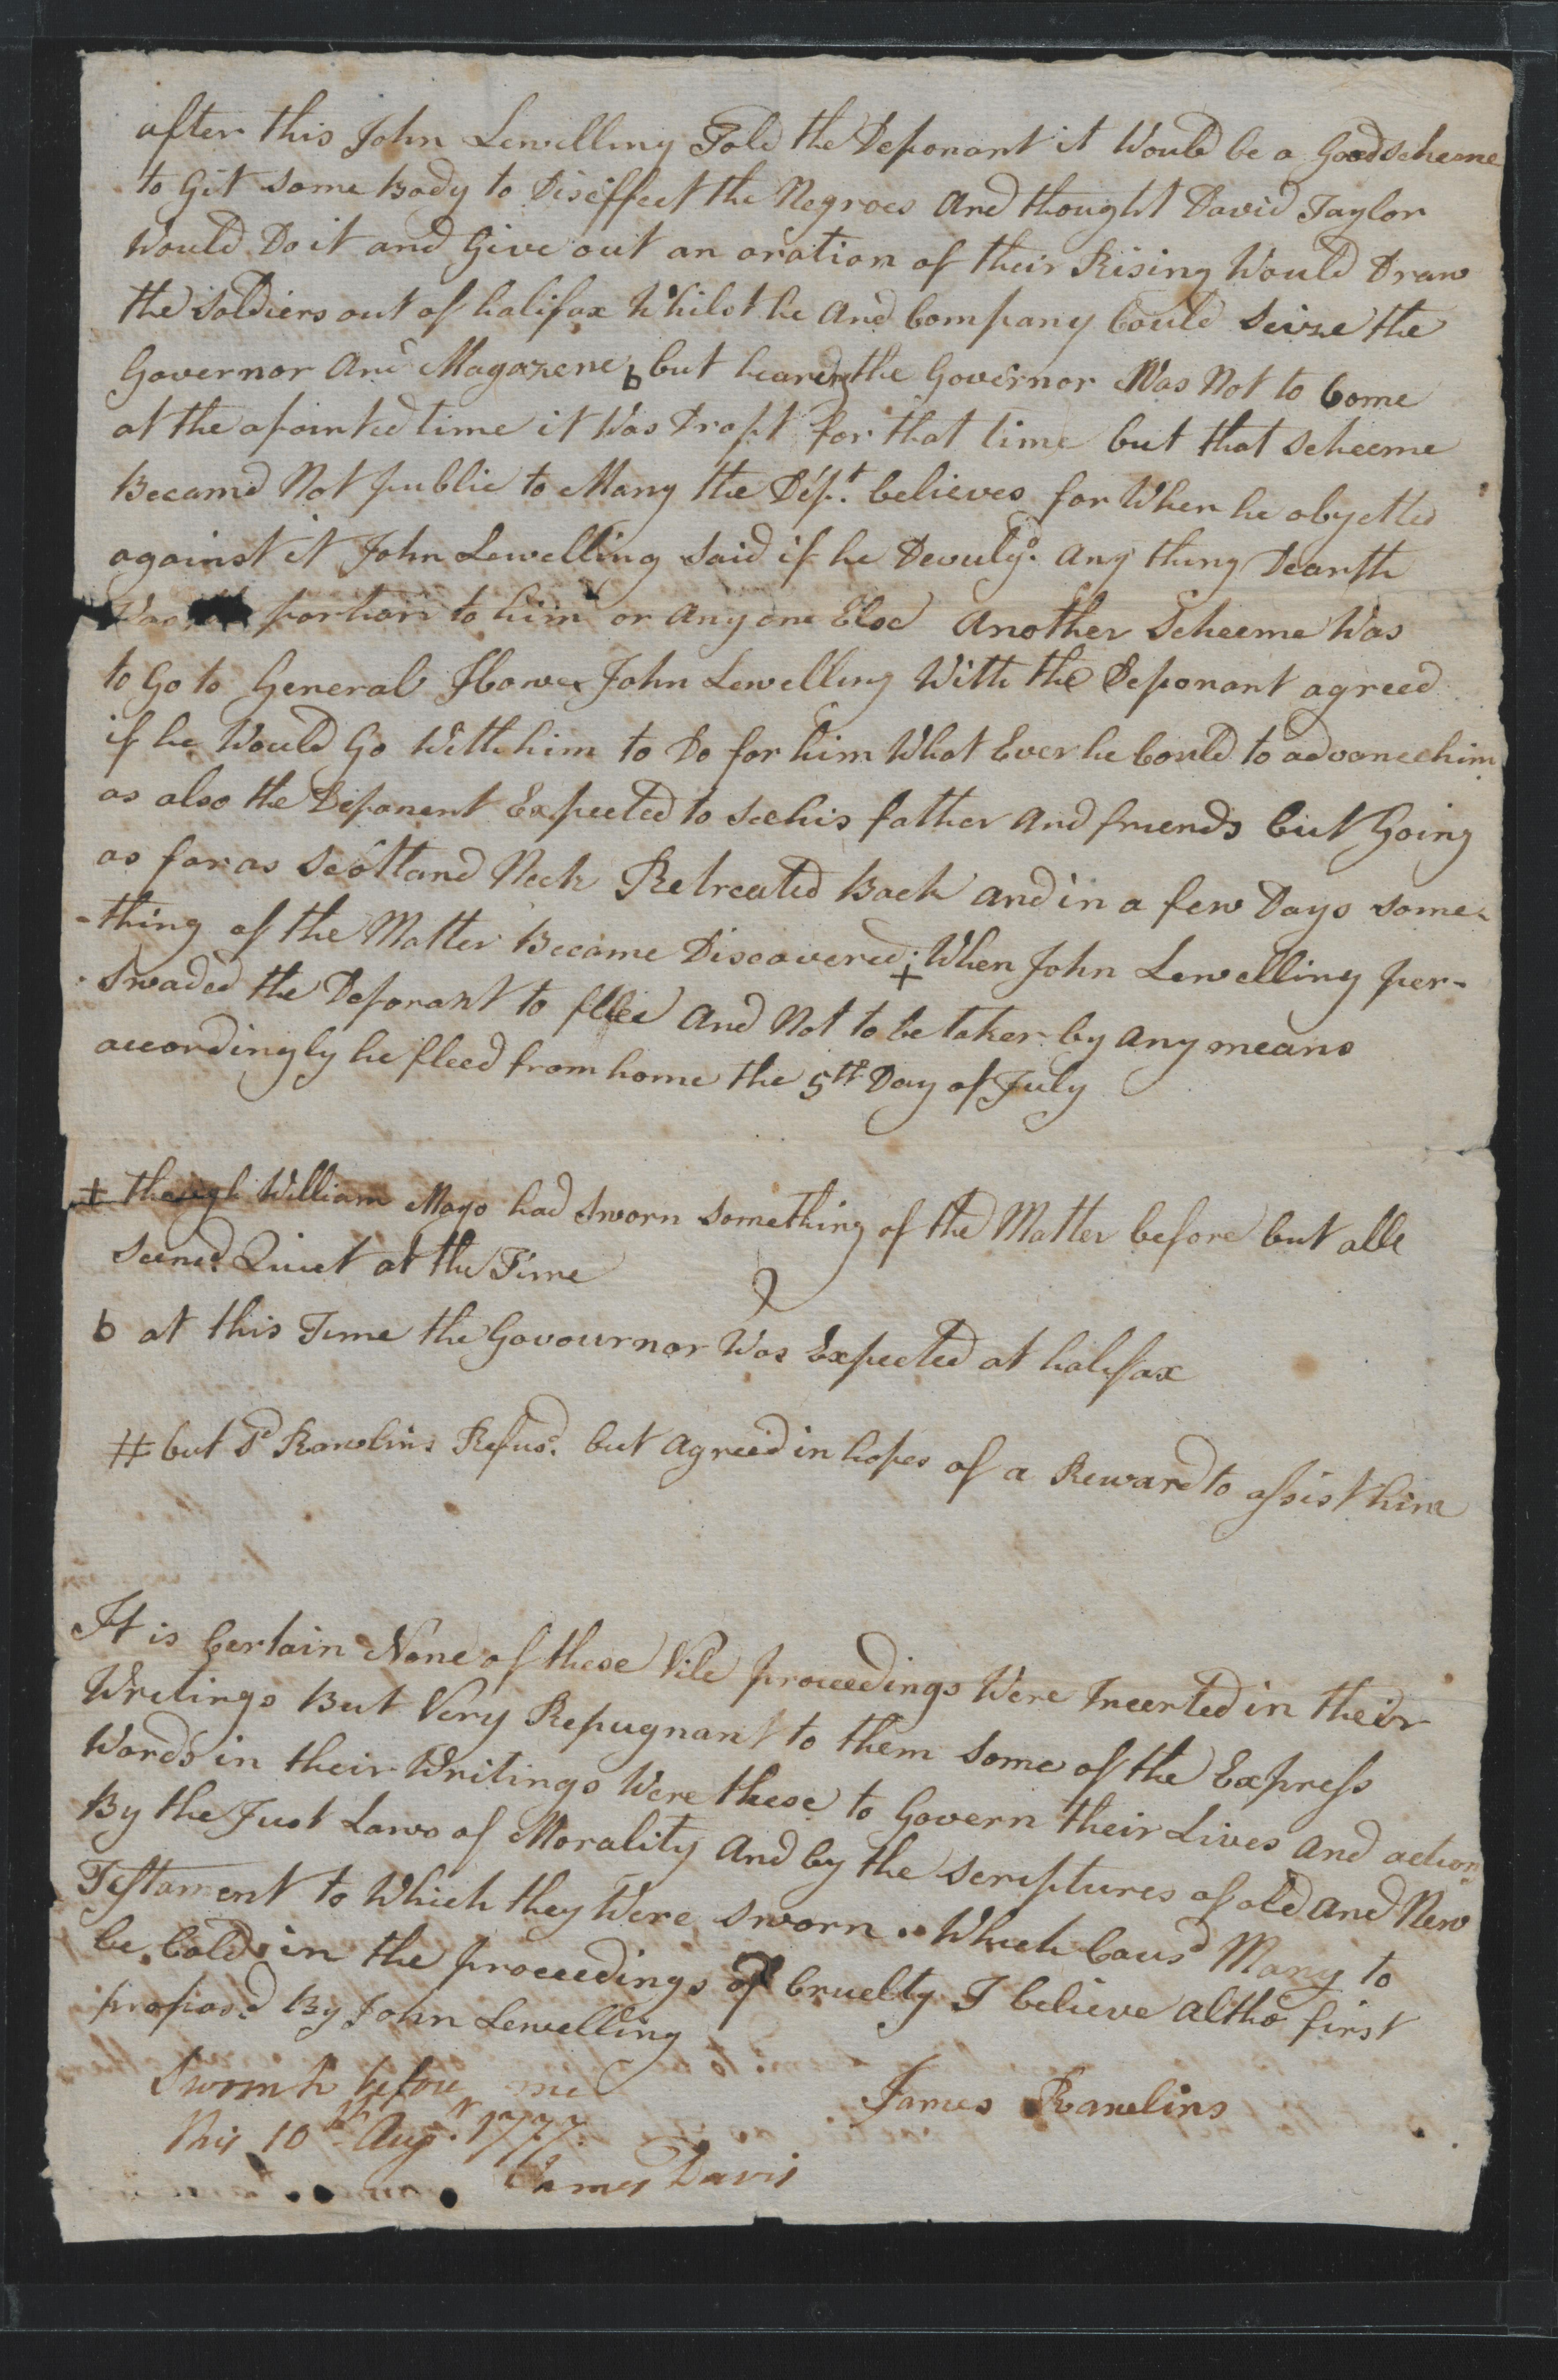 after this John Lewelling Told the Deponant it Would be a Good scheeme
to Git some Body to Diseffect the Negroes And thought David Taylor
Would Do it and Give out an oration of their Rising Would Draw
the Soldiers out of halifax Whilst he And Company Could Seize the
Governor And Magazene b but hearing the Governor Was Not to Come
at the apointed time it Was Dropt for that time but that scheeme
Became Not publie to Many the Dept. believes for When he obgetted
against it John Lewelling Said if he Devulgd. any thing Dearth
Was portion to him or any one Else Another Scheeme Was
to Go to General How John Lewelling With the Deponant agreed
if he Would Go With him to Do for him What Ever he Could to advance him
as also the Deponent Expected to See his father And friends but Going
as far as Scotland Neck Retreated Back and in a few Days some-
-thing of the Matter Became Discovered + When John Lewelling per-
-Swaded the Deponant to fllee And Not to be taken by any means
accordingly he fleed from home the 5th Day of July
+ though William Mayo had Sworn something of the Matter before but alle
Seemd. Quiet at the Time
b at this Time the Govournor Was Expected at halifax
# but Sd Rawlins Refusd. but agreed in hopes of a Reward to assist him
It is Certain None of these Vile proceedings Were Incerted in their
Writings But Very Repugnant to them Some of the Express
Words in their Writings Were these to Govern their Lives and action
By the Just Laws of Morality And by the Scriptures of old and New
Testament to Which they Were Sworn. Which Causd Many to
be Cold in the proceedings of Cruelty I believe altho first
proposd. By John Lewelling
Sworn to before me
this 10th Augt. 1777.
James Rawlins
James Davis